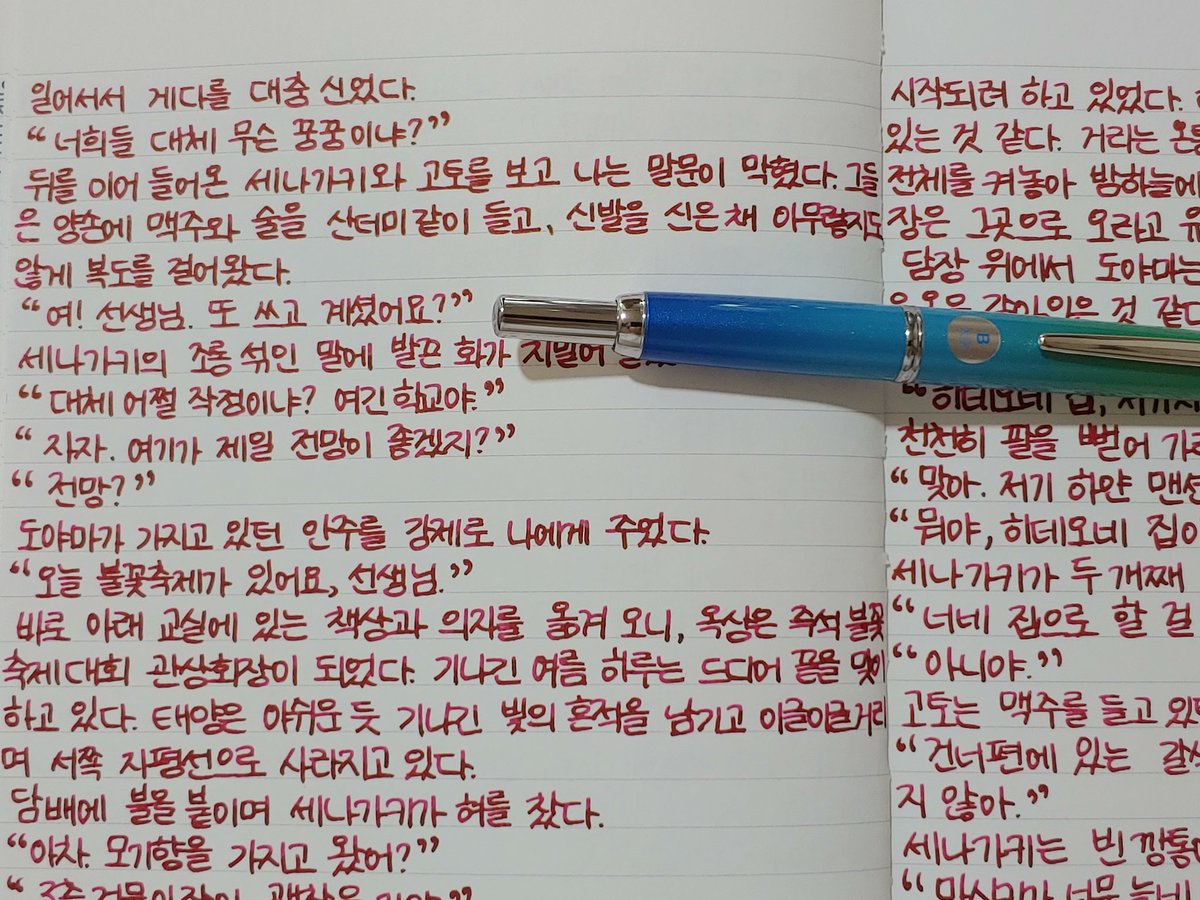 일어서서 게다를 대충 신었다.
“너희들 대체 무슨 꿍꿍이냐?”
뒤를 이어 들어온 세나가키와 고토를 보고 나는 말문이 막혔다. 그들
은 양손에 맥주와 술을 산더미같이 들고, 신발을 신은 채 아무렇지도
않게 복도를 걸어왔다.
“여! 선생님. 또 쓰고 계셨어요?”
세나가키의 조롱 섞인 말에 발끈 화가
“대체 어쩔 작정이냐? 여긴 학교야.”
“자자. 여기가 제일 전망이 좋겠지?”
“전망?”
도야마가 가지고 있던 안주를 강제로 나에게 주었다.
“오늘 불꽃축제가 있어요, 선생님.”
바로 아래 교실에 있는 책상과 의자를 옮겨 오니, 옥상은 즉석 불꽃
축제대회 관상회장이 되었다. 기나긴 여름 하루는 드디어 끝을 맞이
하고 있다. 태양은 아쉬운 듯 기나긴 빛의 흔적을 남기고 이글이글거리
며 서쪽 지평선으로 사라지고 있다.
담배에 불을 붙이며 세나가키가 혀를 찼다.
“아차. 모기향을 가지고 왔어?”
시작되려 하고 있었다.
있는 것 같다. 거리는
전체를 켜놓아 밤하늘에
장은 그곳으로 오라고
담장 위에서 도야마는
것 같다
B
히데오네 집,
천천히 팔을 뻗어
“맞아. 저기 하얀 맨션
“뭐야, 히데오네 집이
세나가키가 두 개째
“너네 집으로 할 걸
“아니야.”
고토는 맥주를 들고
“건너편에 있는
지 않아.”
세나가키는 빈 깡통